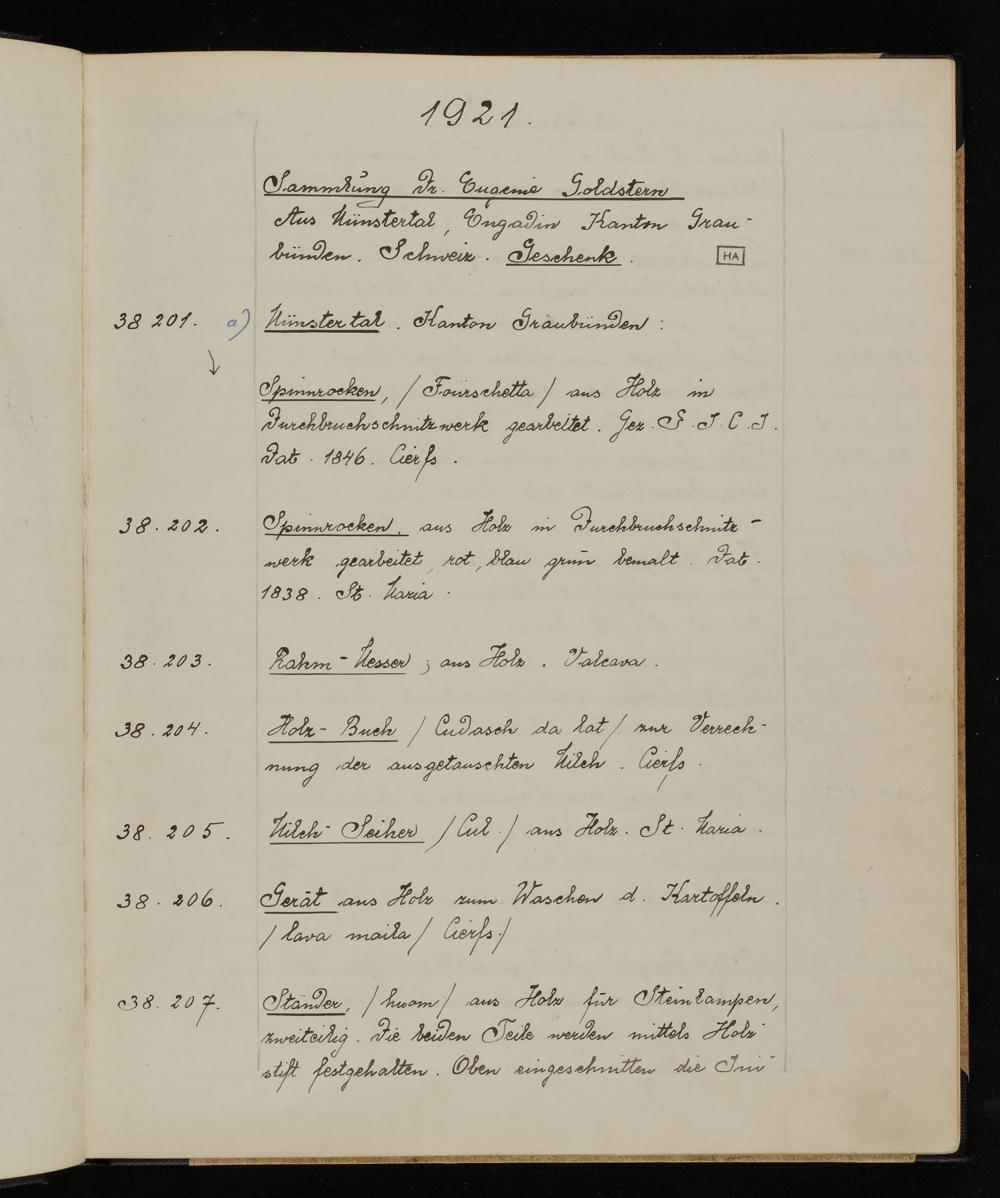 1921.
Sammlung Dr. Eugenie Goldstern
Aus Münstertal, Engadin Kanton Grau-
bünden. Schweiz. Geschenk. HA
38 201. a) Münstertal. Kanton Graubünden:
Spinnrocken, / Fourschetta / aus Holz in
Durchbruchschnitzwerk gearbeitet. Gez. F. J. C. J.
Dat. 1846. Cierfs.
38. 202. Spinnrocken, aus Holz in Durchbruchschnitz-
werk gearbeitet, rot, blau grün bemalt. Dat.
1838. St. Maria.
38. 203. Rahm-Messer; aus Holz. Valcava.
38. 204. Holz-Buch / Cudasch da lat / zur Verrech-
nung der ausgetauschten Milch. Cierfs.
38. 205. Milch-Seiher / Cul. / aus Holz. St. Maria.
38. 206. Gerät aus Holz zum Waschen d. Kartoffeln.
/ lava maila / Cierfs. /
38. 207. Ständer, / huom / aus Holz für Steinlampen,
zweiteilig. Die beiden Teile werden mittels Holz-
stift festgehalten. Oben eingeschnitten die Ini-